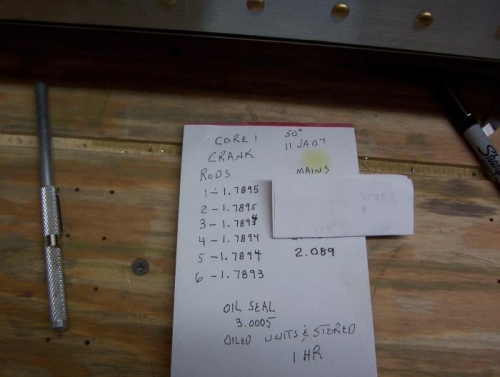 CORE 1 50°
CRANK 11 JA07
RODS MAINS
1 - 1.7895
2 - 1.7895
3 - 1.7894
4 - 1.7894
5 - 1.7894 2.089
6 - 1.7893
OIL SEAL
3.0005
OILED UNITS & STORED
1 HR